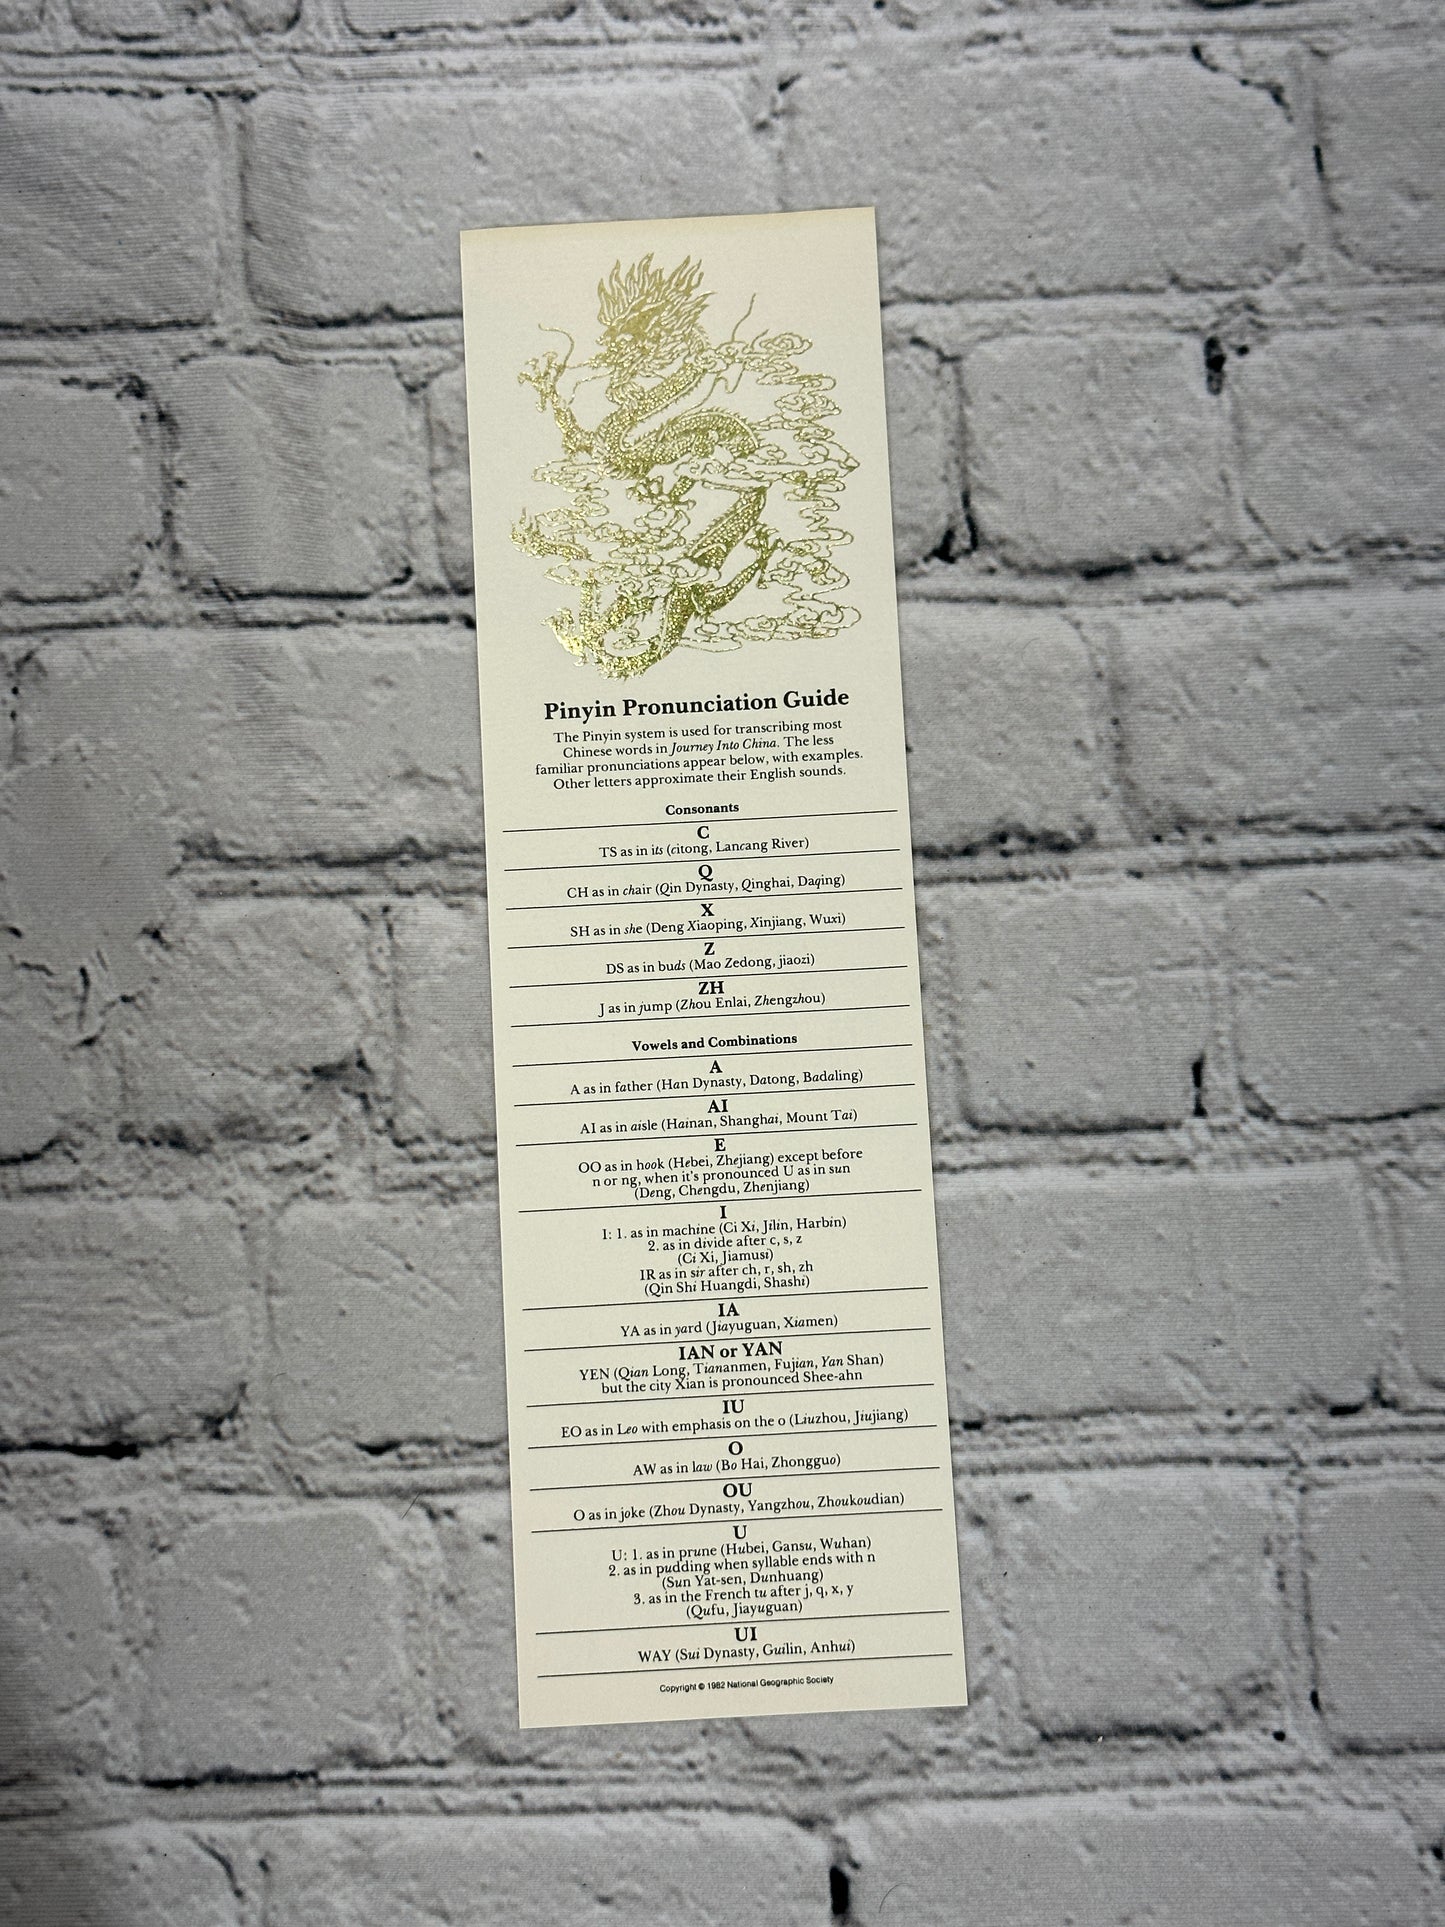 Pinyin Pronunciation Guide
The Pinyin system is used for transcribing most
Chinese words in Journey Into China. The less
familiar pronunciations appear below, with examples.
Other letters approximate their English sounds.
Consonants
C
TS as in its (citong, Lancang River)
Q
CH as in chair (Qin Dynasty, Qinghai, Daqing)
X
SH as in she (Deng Xiaoping, Xinjiang, Wuxi)
Z
DS as in buds (Mao Zedong, jiaozi)
ZH
J as in jump (Zhou Enlai, Zhengzhou)
Vowels and Combinations
A
A as in father (Han Dynasty, Datong, Badaling)
AI
AI as in aisle (Hainan, Shanghai, Mount Tai)
E
OO as in hook (Hebei, Zhejiang) except before
n or ng, when it's pronounced U as in sun
(Deng, Chengdu, Zhenjiang)
I
I: 1. as in machine (Ci Xi, Jilin, Harbin)
2. as in divide after c, s, z
(Ci Xi, Jiamusi)
IR as in sir after ch, r, sh, zh
(Qin Shi Huangdi, Shashi)
IA
YA as in yard (Jiayuguan, Xiamen)
IAN or YAN
YEN (Qian Long, Tiananmen, Fujian, Yan Shan)
but the city Xian is pronounced Shee-ahn
IU
EO as in Leo with emphasis on the o (Liuzhou, Jiujiang)
O
AW as in law (Bo Hai, Zhongguo)
OU
O as in joke (Zhou Dynasty, Yangzhou, Zhoukoudian)
U
U: 1. as in prune (Hubei, Gansu, Wuhan)
2. as in pudding when syllable ends with n
(Sun Yat-sen, Dunhuang)
3. as in the French tu after j, q, x, y
(Qufu, Jiayuguan)
UI
WAY (Sui Dynasty, Guilin, Anhui)
Copyright © 1982 National Geographic Society